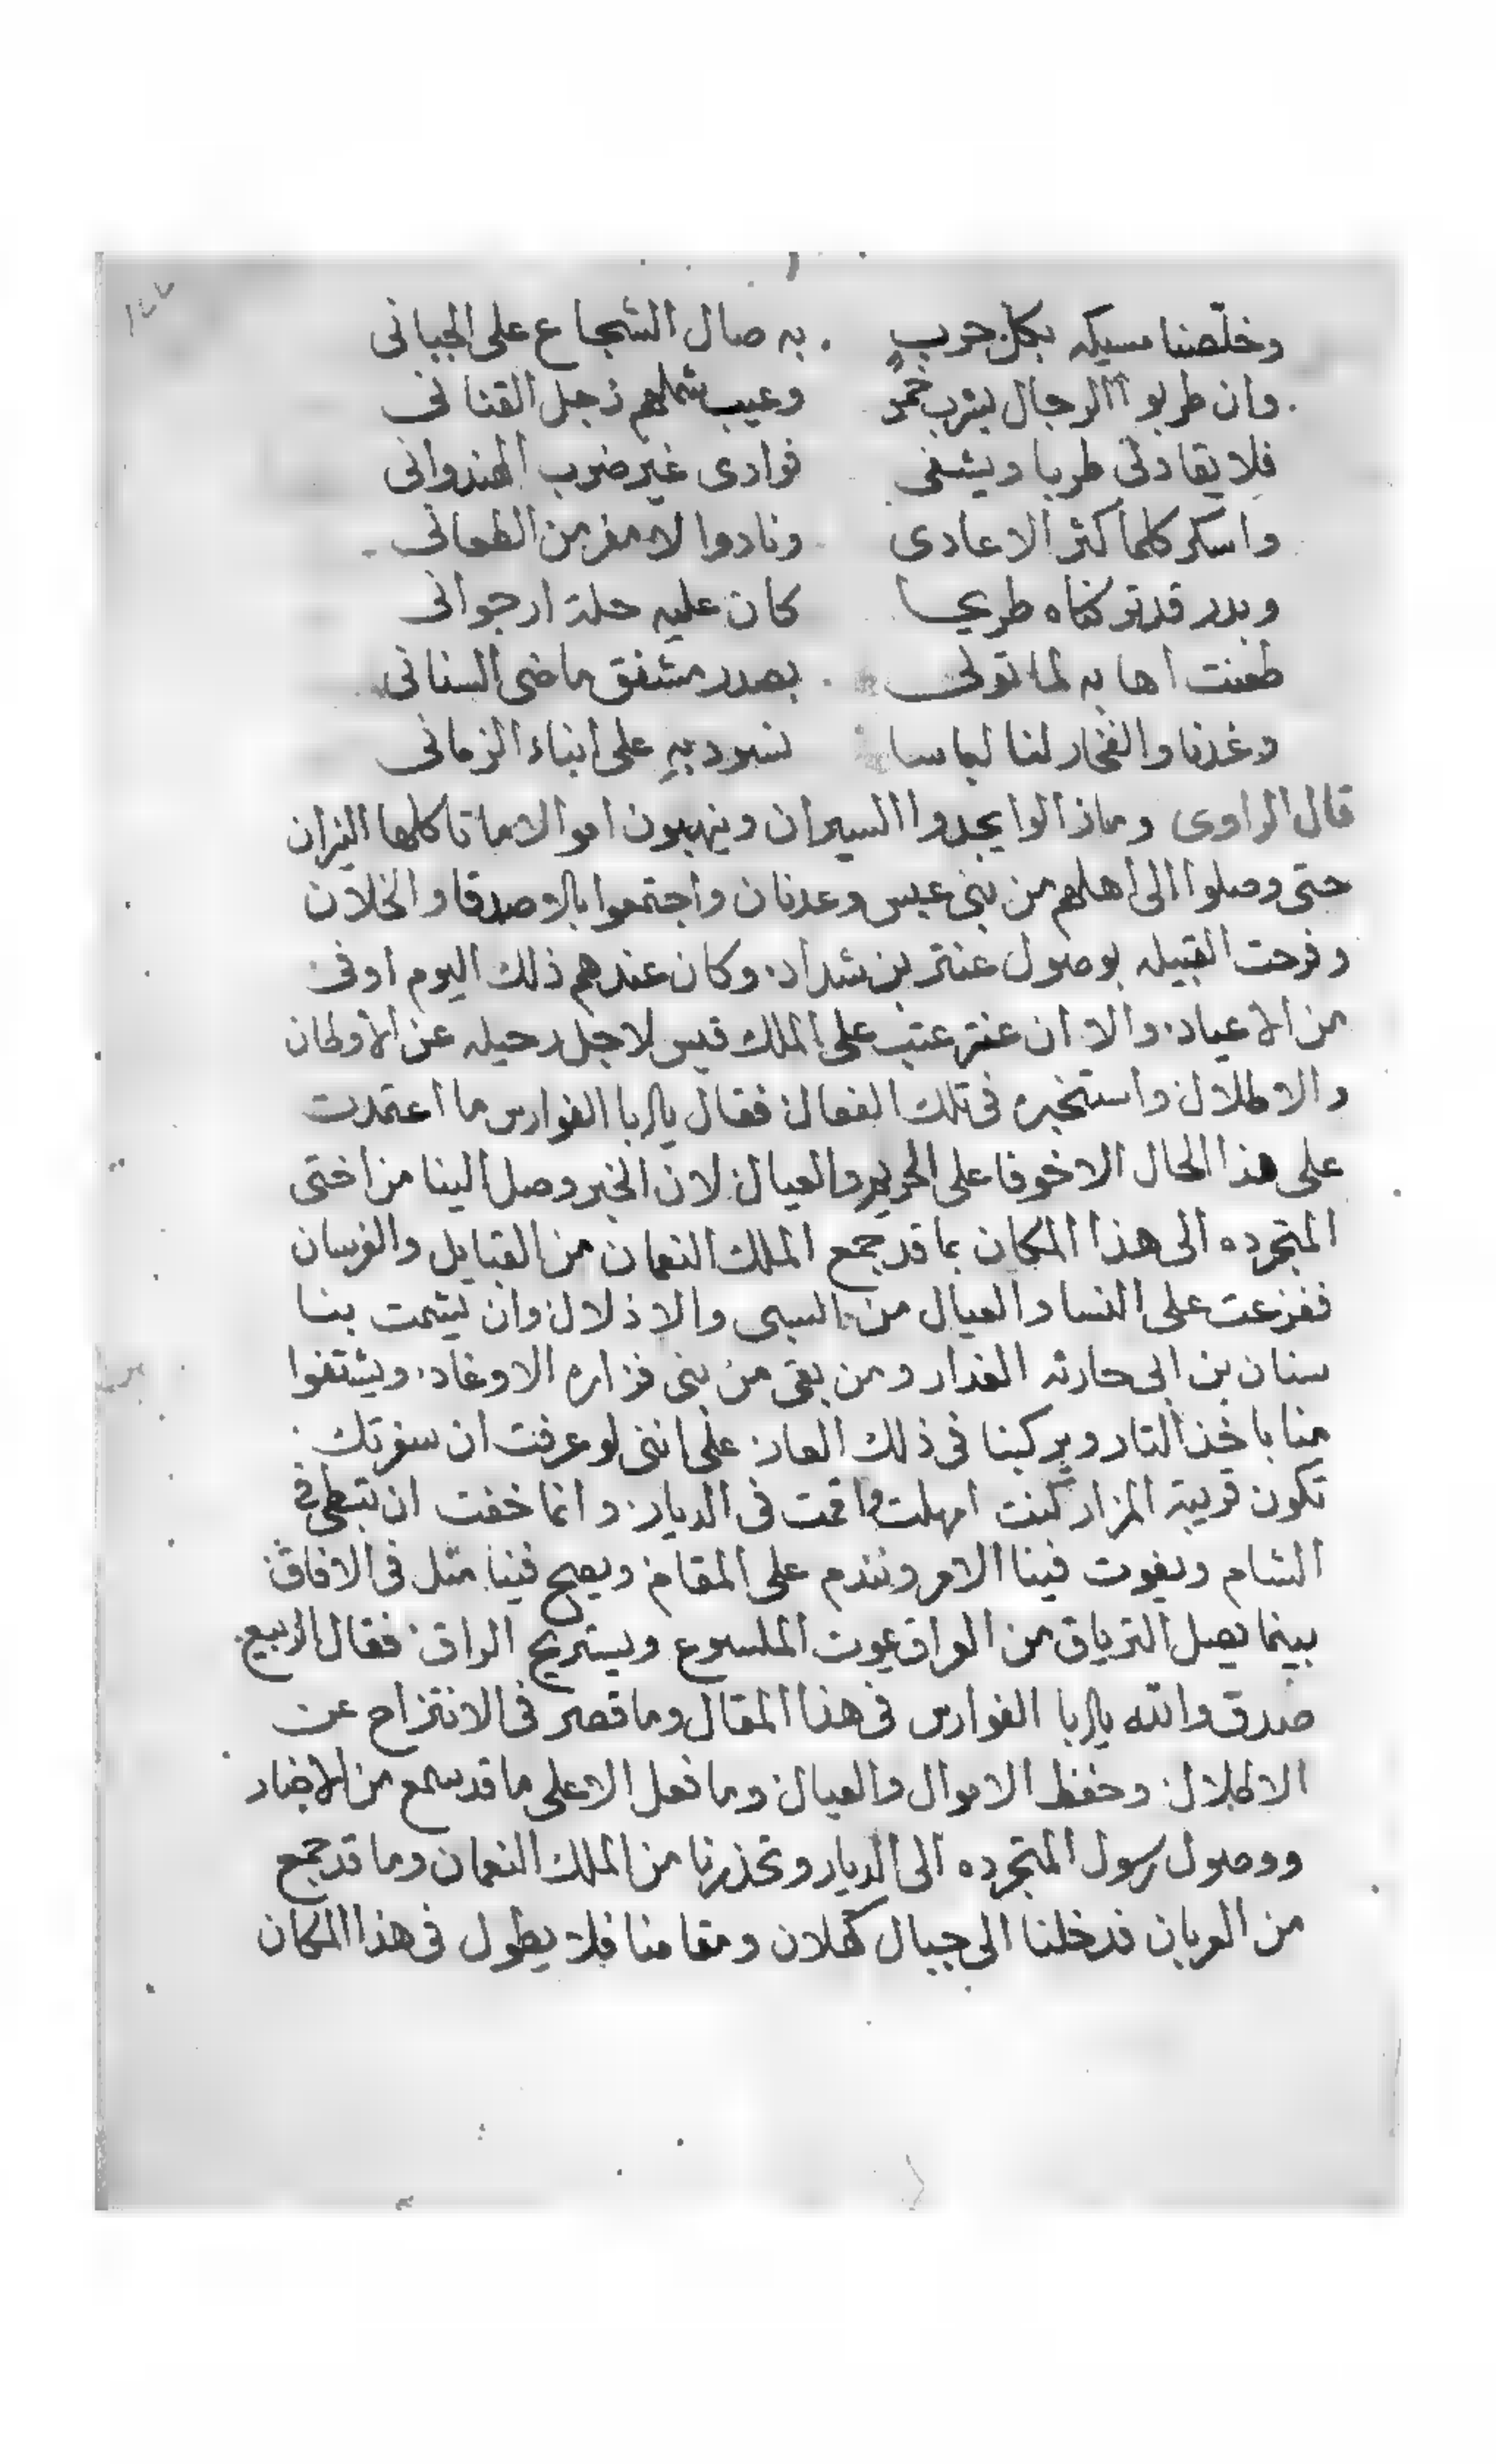 ١٧٧
وخلّصنا مسيكه بكل حربٍ به صال الشجاع على الجباني
وان طربوا الرجال بشرب خمر وعيب شملهم زجل القناني
فلا يقادني طربا ويشفى فوادى غير ضرب الهندوانى
واسكر كلما كثر الاعادى ونادوا لا مفر من الطعانى
وبدر قد تركناه طريحا كان عليه حلة ارجوانى
طعنت اهابه لما تولى بصدر مشفق ماضى السنانى
وعدنا والفخار لنا لباسا نسود بهِ على ابناء الزمانى
قال الراوى ومازالوا يجدوا السيران وينهبون اموالا ما تاكلها النيران
حتى وصلوا الى اهلهم من بنى عبس وعدنان واجتمعوا بالاصدقا والخلان
وفرحت القبيله بوصول عنتر بن شداد. وكان عندهم ذلك اليوم اوفى
من الاعياد. والا ان عنتر عتب على الملك قيس لاجل رحيله عن الاوطان
والاطلال واستخبره فى تلك الفعال فقال يا ابا الفوارس ما اعتمدت
على هذا الحال الا خوفا على الحريم والعيال لان الخبر وصل الينا من اختى
المتجرده الى هذا المكان بما قد جمع الملك النعمان من القبايل والفرسان
ففزعت على النسا والعيال من السبى والاذلال وان يشمت بنا
سنان بن ابى حارثه الغدار ومن بقى من بنى فزاره الاوغاد. ويشتفوا
منا باخذ التار ويركبنا فى ذلك العار على اننى لو عرفت ان سفرتك
تكون قريبة المزار كنت امهلت واقمت فى الديار وانما خفت ان تبطى فى
الشام ويفوت فينا الامر ونندم على المقام ويصح فينا مثل فى الافاق
بينما يصل الترياق من العراق يموت الملسوع ويستريح الراق فقال الربيع
صدق والله يا ابا الفوارس فى هذا المقال وما قصر فى الانتزاح عن
الاطلال وحفظ الاموال والعيال وما فعل الا على ما قد سمع من الاخبار
ووصول رسول المتجرده الى الديار وتحذرنا من الملك النعمان وما قد جمع
من العربان فدخلنا الى جبال كهلان ومقامنا فلا يطول فى هذا المكان